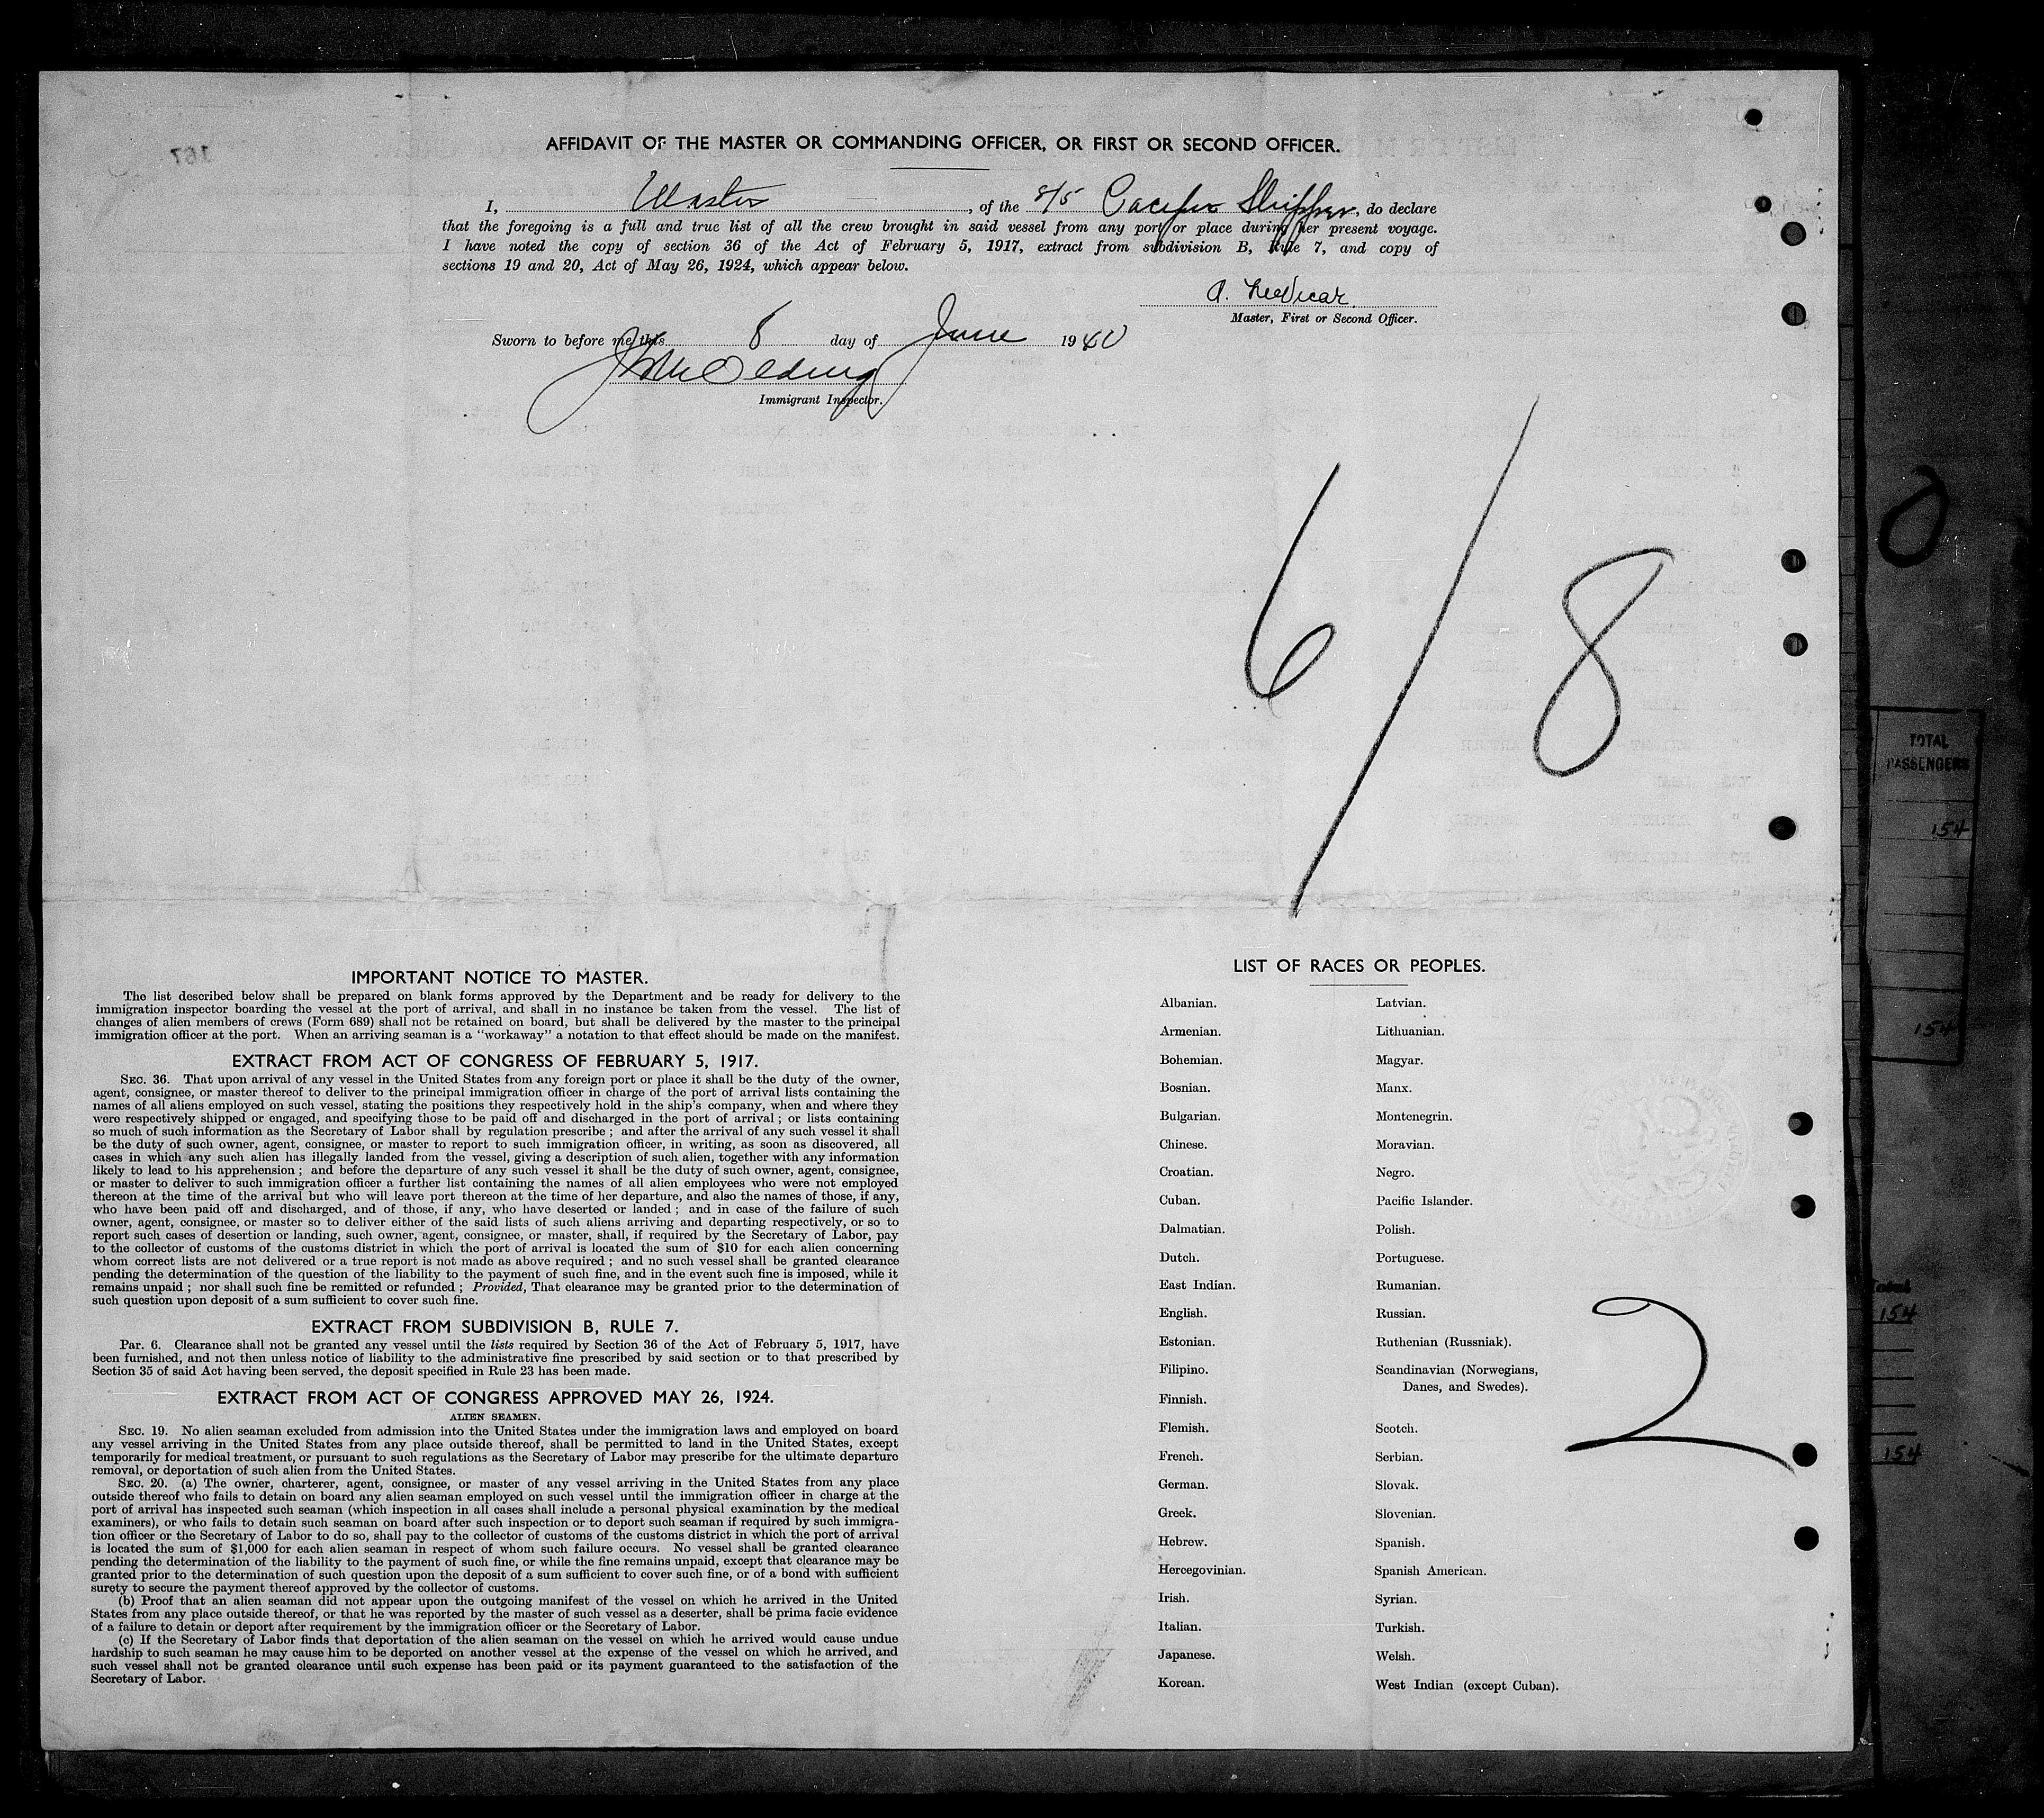 AFFIDAVIT OF THE MASTER OR COMMANDING OFFICER, OR FIRST OR SECOND OFFICER.
I, Master, of the S/S Pacific Shipper, do declare
that the foregoing is a full and true list of all the crew brought in said vessel from any port or place during her present voyage.
I have noted the copy of section 36 of the Act of February 5, 1917, extract from subdivision B, Rule 7, and copy of
sections 19 and 20, Act of May 26, 1924, which appear below.
Master, First or Second Officer.
Sworn to before me this 8 day of June 1940
Immigrant Inspector.
6/8
IMPORTANT NOTICE TO MASTER.
The list described below shall be prepared on blank forms approved by the Department and be ready for delivery to the
immigration inspector boarding the vessel at the port of arrival, and shall in no instance be taken from the vessel. The list of
changes of alien members of crews (Form 689) shall not be retained on board, but shall be delivered by the master to the principal
immigration officer at the port. When an arriving seaman is a "workaway" a notation to that effect should be made on the manifest.
EXTRACT FROM ACT OF CONGRESS OF FEBRUARY 5, 1917.
SEC. 36. That upon arrival of any vessel in the United States from any foreign port or place it shall be the duty of the owner,
agent, consignee, or master thereof to deliver to the principal immigration officer in charge of the port of arrival lists containing the
names of all aliens employed on such vessel, stating the positions they respectively hold in the ship's company, when and where they
were respectively shipped or engaged, and specifying those to be paid off and discharged in the port of arrival ; or lists containing
so much of such information as the Secretary of Labor shall by regulation prescribe ; and after the arrival of any such vessel it shall
be the duty of such owner, agent, consignee, or master to report to such immigration officer, in writing, as soon as discovered, all
cases in which any such alien has illegally landed from the vessel, giving a description of such alien, together with any information
likely to lead to his apprehension ; and before the departure of any such vessel it shall be the duty of such owner, agent, consignee,
or master to deliver to such immigration officer a further list containing the names of all alien employees who were not employed
thereon at the time of the arrival but who will leave port thereon at the time of her departure, and also the names of those, if any,
who have been paid off and discharged, and of those, if any, who have deserted or landed ; and in case of the failure of such
owner, agent, consignee, or master so to deliver either of the said lists of such aliens arriving and departing respectively, or so to
report such cases of desertion or landing, such owner, agent, consignee, or master, shall, if required by the Secretary of Labor, pay
to the collector of customs of the customs district in which the port of arrival is located the sum of $10 for each alien concerning
whom correct lists are not delivered or a true report is not made as above required ; and no such vessel shall be granted clearance
pending the determination of the question of the liability to the payment of such fine, and in the event such fine is imposed, while it
remains unpaid ; nor shall such fine be remitted or refunded ; Provided, That clearance may be granted prior to the determination of
such question upon deposit of a sum sufficient to cover such fine.
EXTRACT FROM SUBDIVISION B, RULE 7.
Par. 6. Clearance shall not be granted any vessel until the lists required by Section 36 of the Act of February 5, 1917, have
been furnished, and not then unless notice of liability to the administrative fine prescribed by said section or to that prescribed by
Section 35 of said Act having been served, the deposit specified in Rule 23 has been made.
EXTRACT FROM ACT OF CONGRESS APPROVED MAY 26, 1924.
ALIEN SEAMEN.
SEC. 19. No alien seaman excluded from admission into the United States under the immigration laws and employed on board
any vessel arriving in the United States from any place outside thereof, shall be permitted to land in the United States, except
temporarily for medical treatment, or pursuant to such regulations as the Secretary of Labor may prescribe for the ultimate departure
removal, or deportation of such alien from the United States.
SEC. 20. (a) The owner, charterer, agent, consignee, or master of any vessel arriving in the United States from any place
outside thereof who fails to detain on board any alien seaman employed on such vessel until the immigration officer in charge at the
port of arrival has inspected such seaman (which inspection in all cases shall include a personal physical examination by the medical
examiners), or who fails to detain such seaman on board after such inspection or to deport such seaman if required by such immigra-
tion officer or the Secretary of Labor to do so, shall pay to the collector of customs of the customs district in which the port of arrival
is located the sum of $1,000 for each alien seaman in respect of whom such failure occurs. No vessel shall be granted clearance
pending the determination of the liability to the payment of such fine, or while the fine remains unpaid, except that clearance may be
granted prior to the determination of such question upon the deposit of a sum sufficient to cover such fine, or of a bond with sufficient
surety to secure the payment thereof approved by the collector of customs.
(b) Proof that an alien seaman did not appear upon the outgoing manifest of the vessel on which he arrived in the United
States from any place outside thereof, or that he was reported by the master of such vessel as a deserter, shall be prima facie evidence
of a failure to detain or deport after requirement by the immigration officer or the Secretary of Labor.
(c) If the Secretary of Labor finds that deportation of the alien seaman on the vessel on which he arrived would cause undue
hardship to such seaman he may cause him to be deported on another vessel at the expense of the vessel on which he arrived, and
such vessel shall not be granted clearance until such expense has been paid or its payment guaranteed to the satisfaction of the
Secretary of Labor.
LIST OF RACES OR PEOPLES.
Albanian.
Armenian.
Bohemian.
Bosnian.
Bulgarian.
Chinese.
Croatian.
Cuban.
Dalmatian.
Dutch.
East Indian.
English.
Estonian.
Filipino.
Finnish.
Flemish.
French.
German.
Greek.
Hebrew.
Hercegovinian.
Irish.
Italian.
Japanese.
Korean.
Latvian.
Lithuanian.
Magyar.
Manx.
Montenegrin.
Moravian.
Negro.
Pacific Islander.
Polish.
Portuguese.
Rumanian.
Russian.
Ruthenian (Russniak).
Scandinavian (Norwegians,
Danes, and Swedes).
Scotch.
Serbian.
Slovak.
Slovenian.
Spanish.
Spanish American.
Syrian.
Turkish.
Welsh.
West Indian (except Cuban).
2
0
TOTAL
PASSENGERS
154
154
Total
154
154